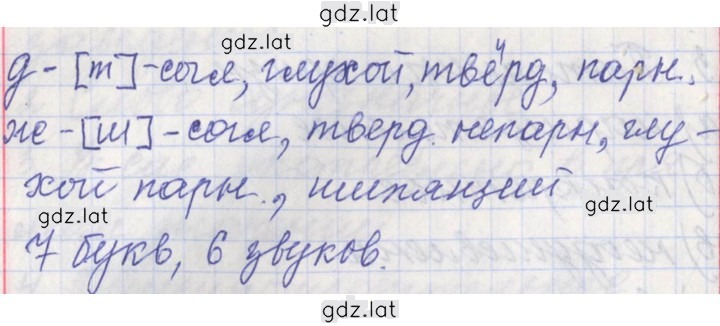 gdz.lat
gdz.lat
д - [т] - согл, глухой, твёрд, парн.
же - [ш] - согл, тверд. непарн, глу-
хой парн., шипящий
gdz.lat gdz.lat
7 букв, 6 звуков.
gdz.lat